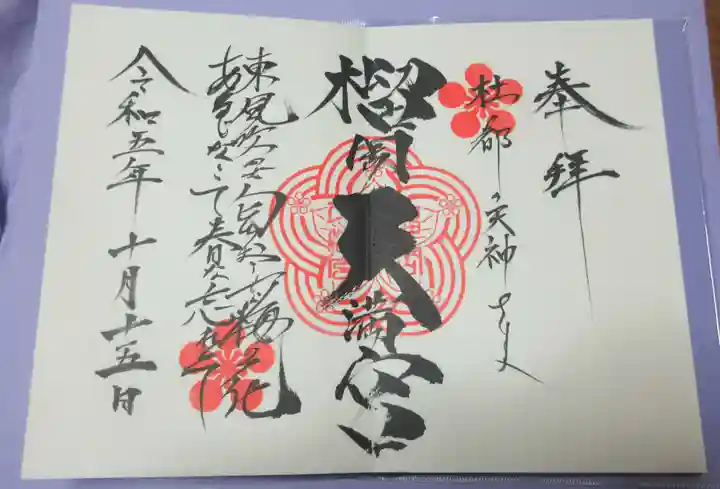 奉拝
杜都の天神さま
榴岡天満宮
東風吹かば匂おこせよ梅の花
あるじなしとて春な忘れそ
令和五年 十月十五日